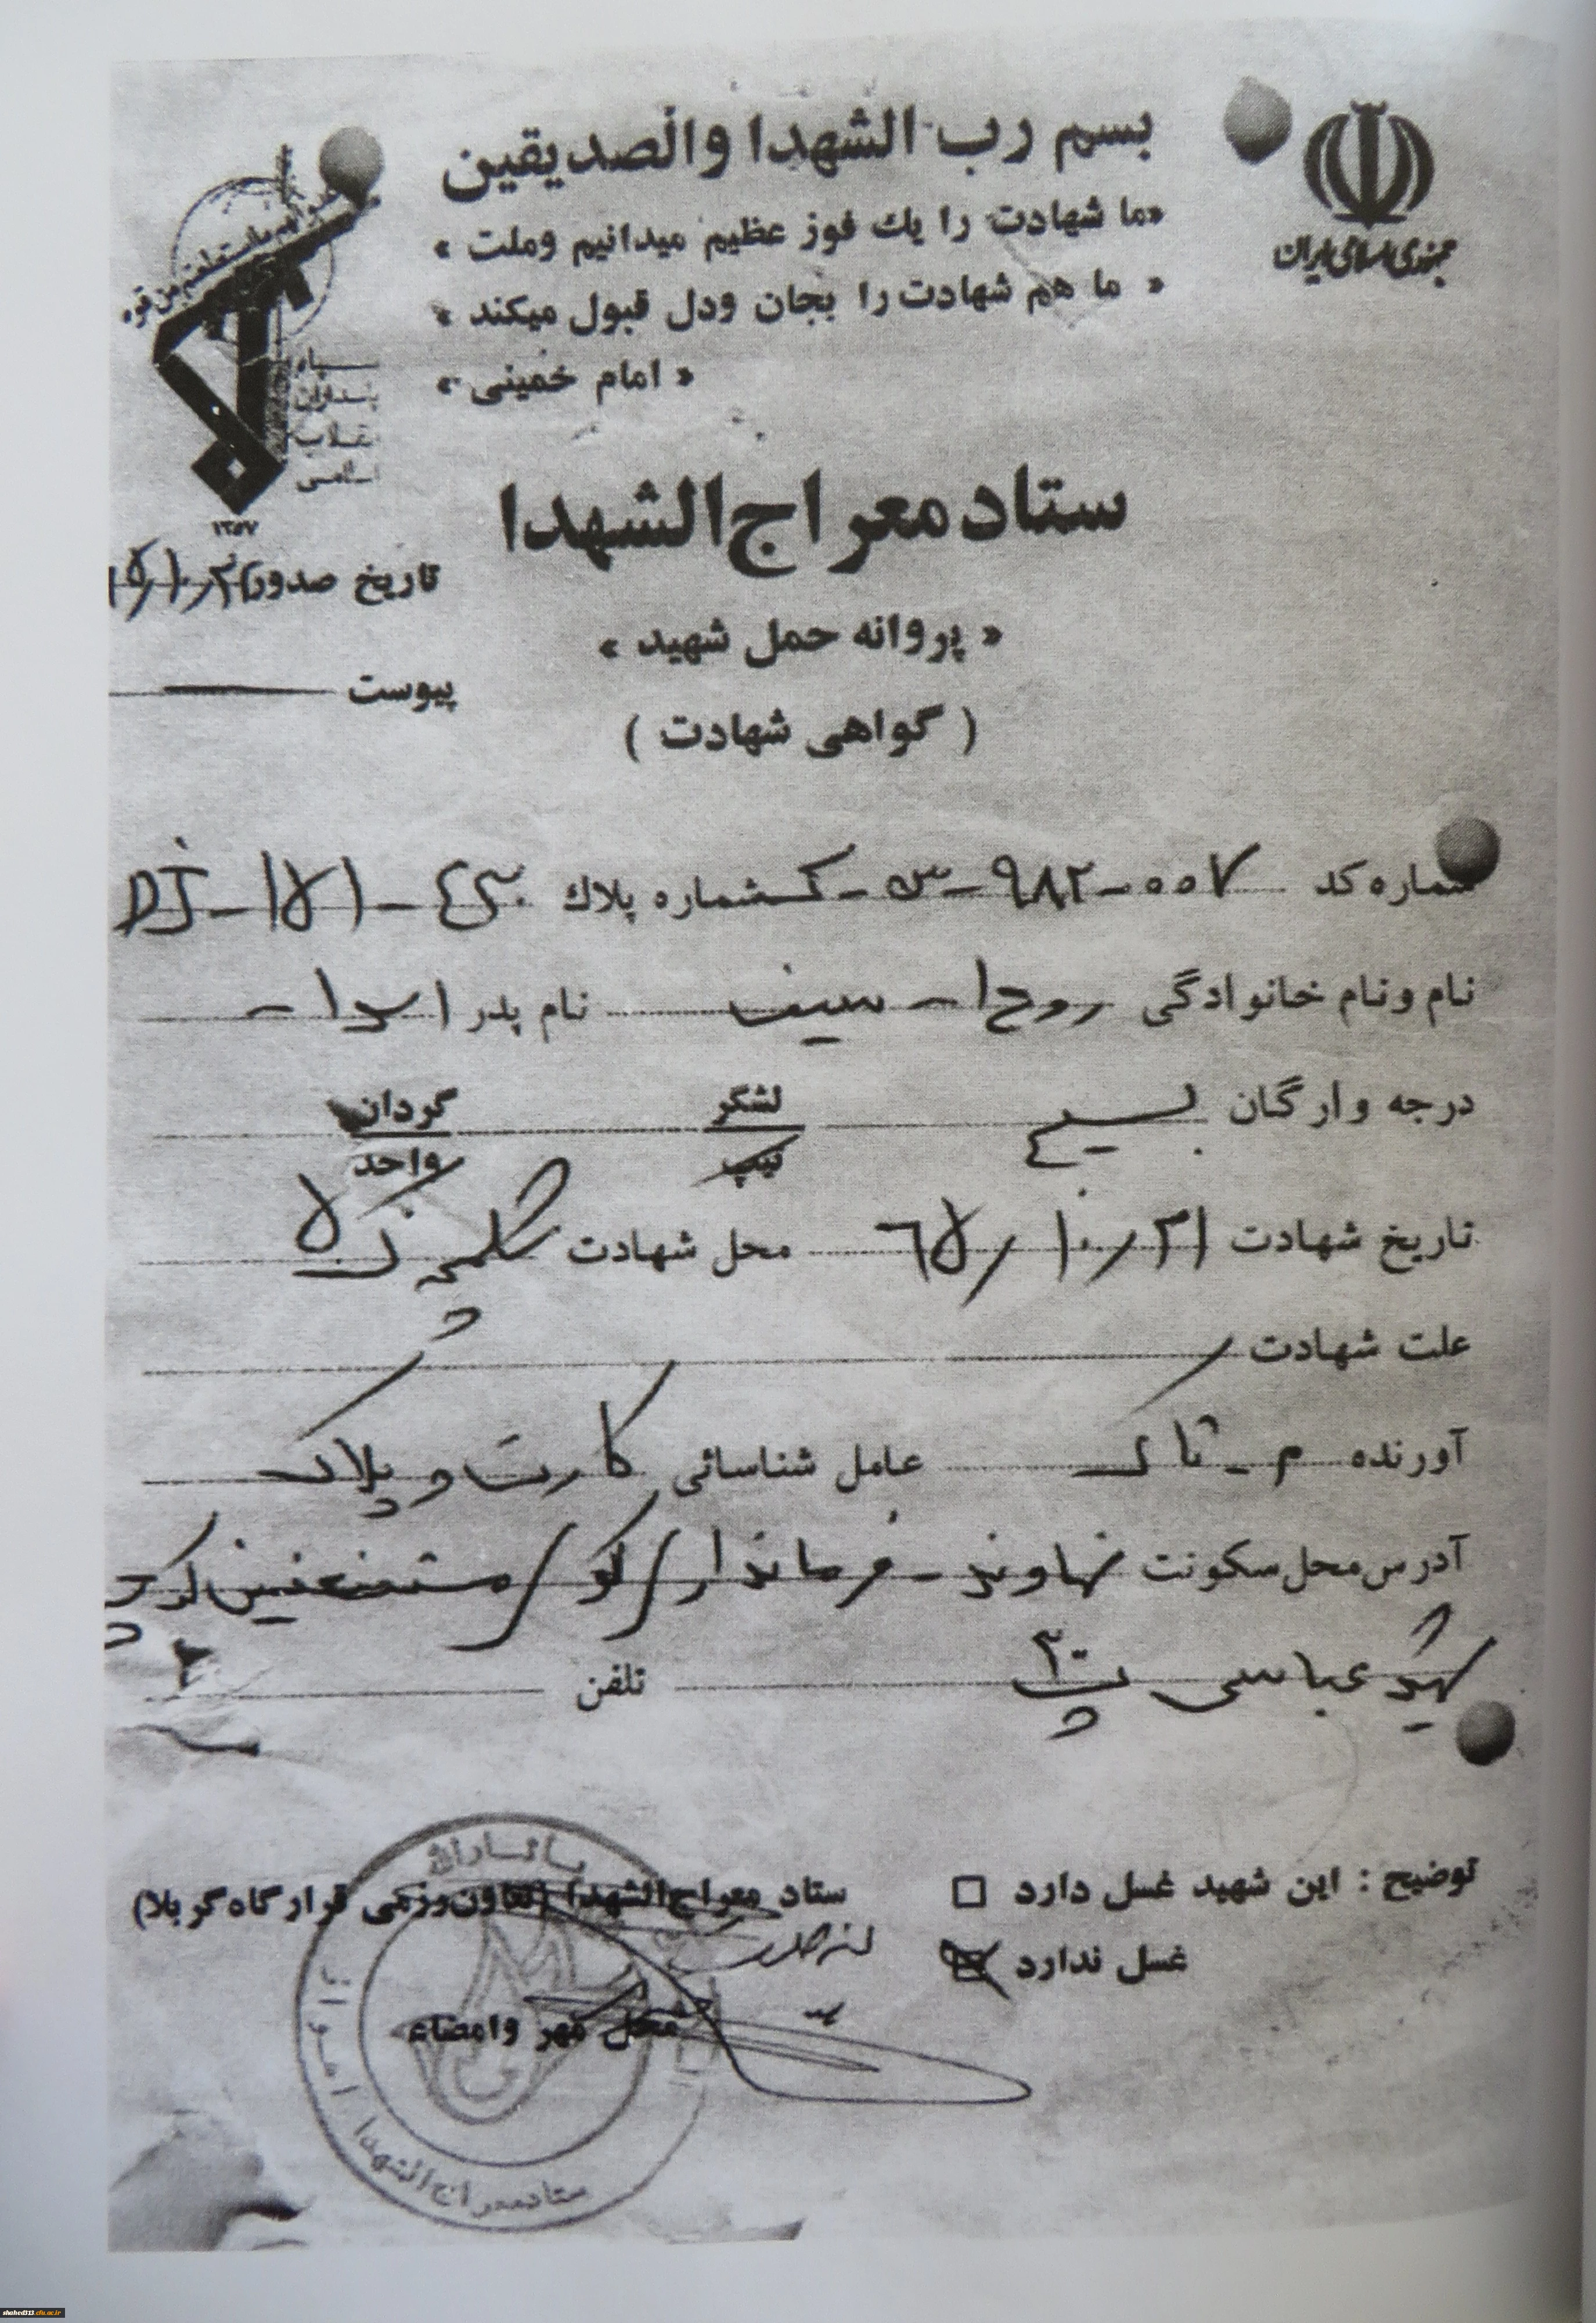 بسم رب الشهدا والصديقين
«ما شهادت را یك فوز عظیم میدانیم وملت »
« ما هم شهادت را بجان ودل قبول میکند »
« امام خمینی »
جمهوری اسلامی ایران
سپاه
پاسداران
انقلاب
اسلامی
۱۳۵۷
ستاد معراج الشهدا
تاریخ صدور
« پروانه حمل شهید »
پیوست
( گواهی شهادت )
شماره کد ۹۸۲-۰۰۷-س-ک شماره پلاك DJ-۱۵۱-۴۳۰
نام ونام خانوادگی روح ا - سیف نام پدر اسدا -
درجه وارگان بسیج لشگر گردان
تیپ واحد
تاریخ شهادت ۶۵/۱۰/۲۱ محل شهادت شلمچه ک ۵
علت شهادت
آورنده م - تاک عامل شناسائی کارت و پلاک
آدرس محل سکونت نهاوند - فرماندار کو مستضعفین کوچه
شهید عباسی پ۳ تلفن
توضیح : این شهید غسل دارد □ ستاد معراج الشهدا (تعاون رزمی قرارگاه کربلا)
غسل ندارد
محل مهر وامضاء
یا ثارالله
ستاد معراج الشهدا اهواز
shahed313.cfu.ac.ir